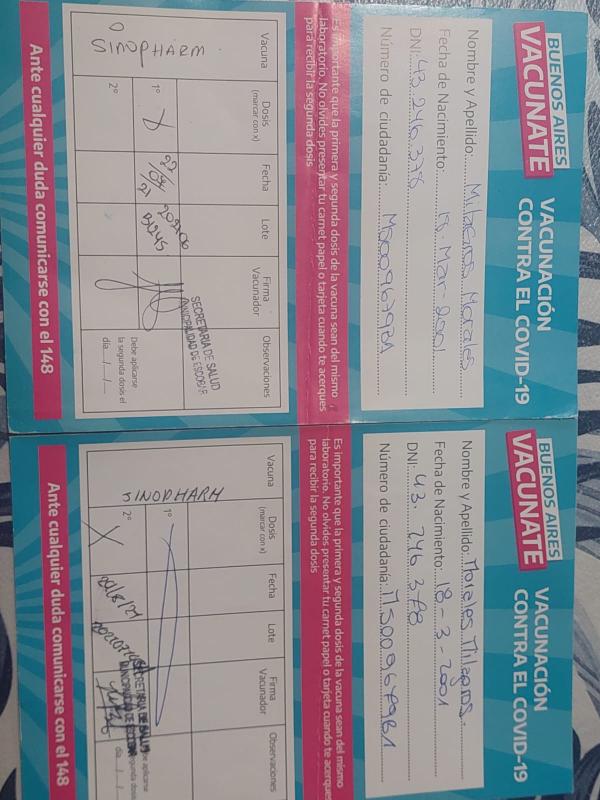 BUENOS AIRES
VACUNATE
VACUNACIÓN
CONTRA EL COVID-19
Nombre y Apellido: Milagros Morales
Fecha de Nacimiento: 18-Mar-2001
DNI: 43.246.378
Número de ciudadanía: M5009679B1
Es importante que la primera y segunda dosis de la vacuna sean del mismo
laboratorio. No olvides presentar tu carnet papel o tarjeta cuando te acerques
para recibir la segunda dosis
Vacuna
Dosis
(marcar con x)
Fecha
Lote
Firma
Vacunador
Observaciones
SINOPHARM
1º
X
SECRETARIA DE SALUD
MUNICIPALIDAD DE ESCOBAR
2º
Debe aplicarse
la segunda dosis el
día.../.../...
Ante cualquier duda comunicarse con el 148
BUENOS AIRES
VACUNATE
VACUNACIÓN
CONTRA EL COVID-19
Nombre y Apellido: Morales Milagros.
Fecha de Nacimiento: 18-3-2001
DNI: 43.246.378
Número de ciudadanía: M5009679B1
Es importante que la primera y segunda dosis de la vacuna sean del mismo
laboratorio. No olvides presentar tu carnet papel o tarjeta cuando te acerques
para recibir la segunda dosis
Vacuna
Dosis
(marcar con x)
Fecha
Lote
Firma
Vacunador
Observaciones
SINOPHARM
1º
2º
X
SECRETARIA DE SALUD
MUNICIPALIDAD DE ESCOBAR
Ante cualquier duda comunicarse con el 148